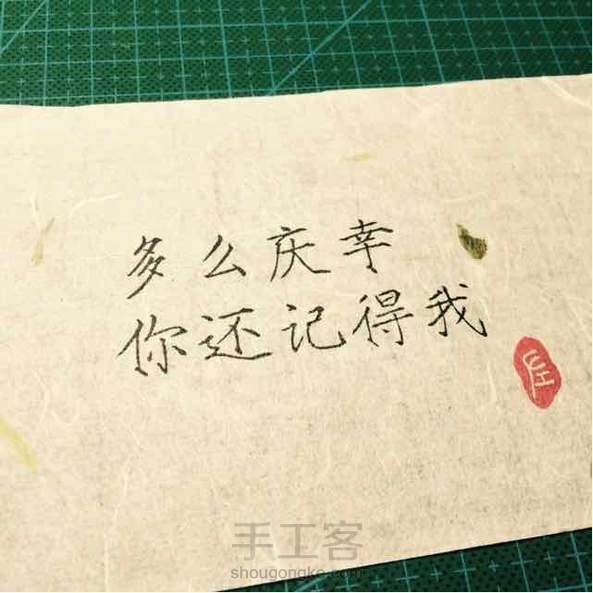 多么庆幸
你还记得我
手工客
shougongke.com